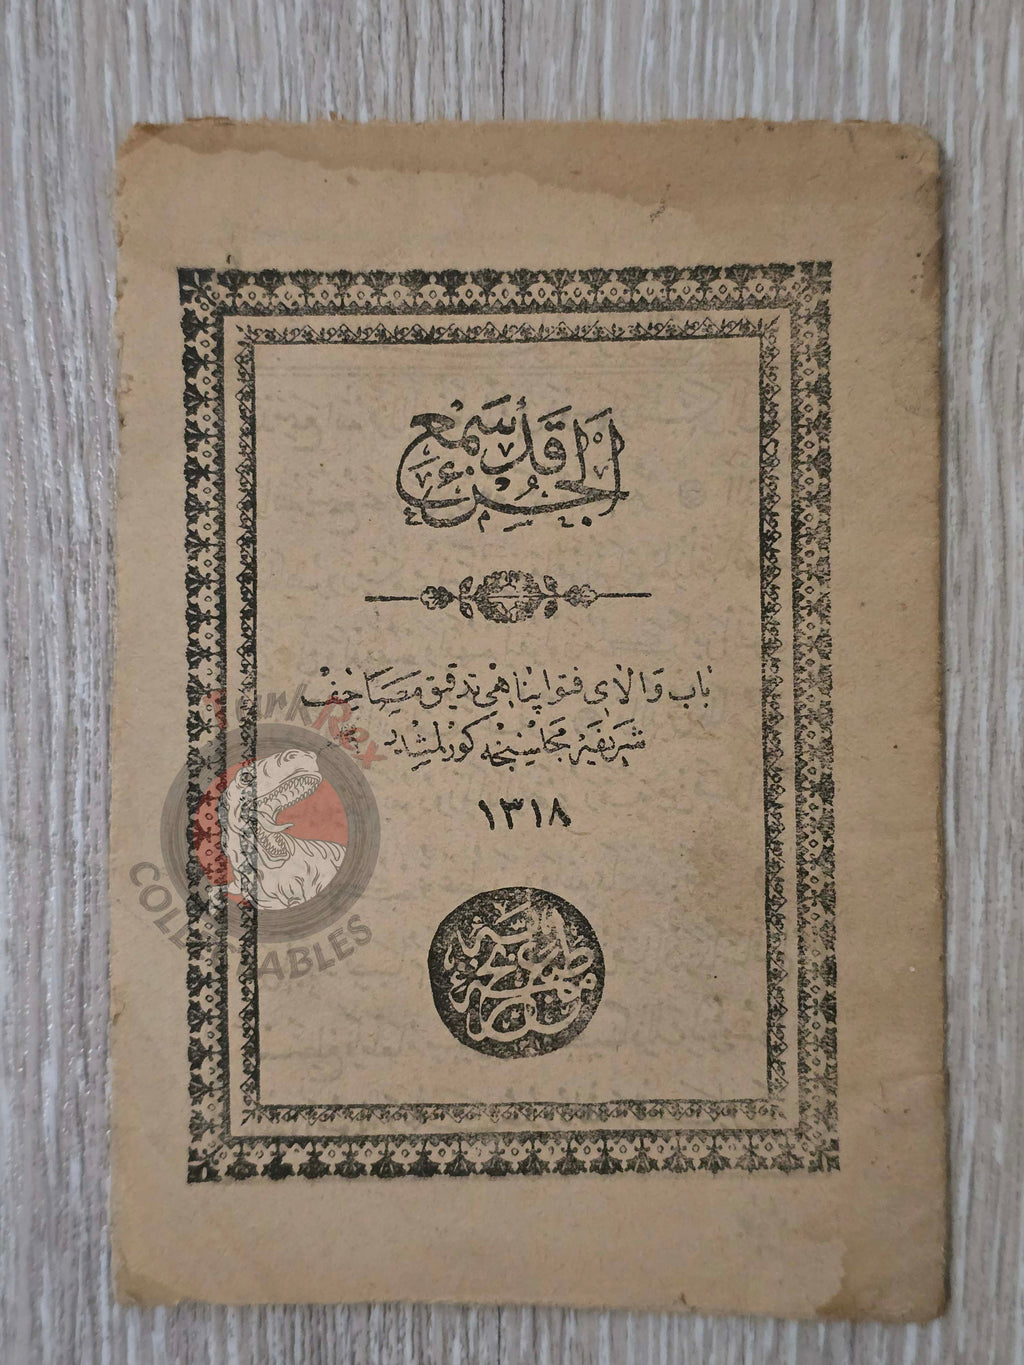 الجزء
قد سمع
باب والای فتوا پناهی تدقیق مصاحف
شریفه مجلسنجه كورلمشدر
١٣١٨
Rex
COLLECTABLES